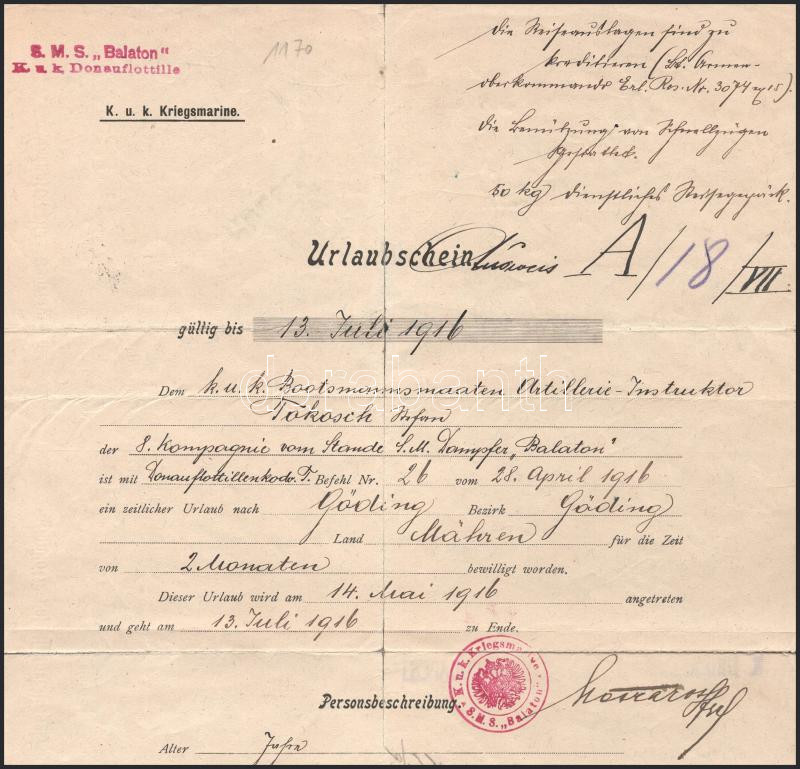 S. M. S. „Balaton"
K. u. k. Donauflottille
1170
K. u. k. Kriegsmarine.
Die Reiseauslagen sind zu
kreditieren (Lt. Armee-
oberkommando Erl. Res. Nr. 3074 ex 15).
Die Benützung von Schnellzügen
gestattet.
50 kg dienstliches Reisegepäck.
Urlaubschein
A/18/VII
gültig bis 13. Juli 1916
darabanth
Dem k. u. k. Bootsmannsmaaten Artillerie-Instruktor
Tökosch Stefan
der 8. Kompagnie vom Stande S. M. Dampfer „Balaton"
ist mit Donauflottillenkdo. T. Befehl Nr. 26 vom 28. April 1916
ein zeitlicher Urlaub nach Göding Bezirk Göding
Land Mähren für die Zeit
von 2 Monaten bewilligt worden.
Dieser Urlaub wird am 14. Mai 1916 angetreten
und geht am 13. Juli 1916 zu Ende.
K. u. k. Kriegsmarine
S. M. S. „Balaton"
Personsbeschreibung.
Alter Jahre